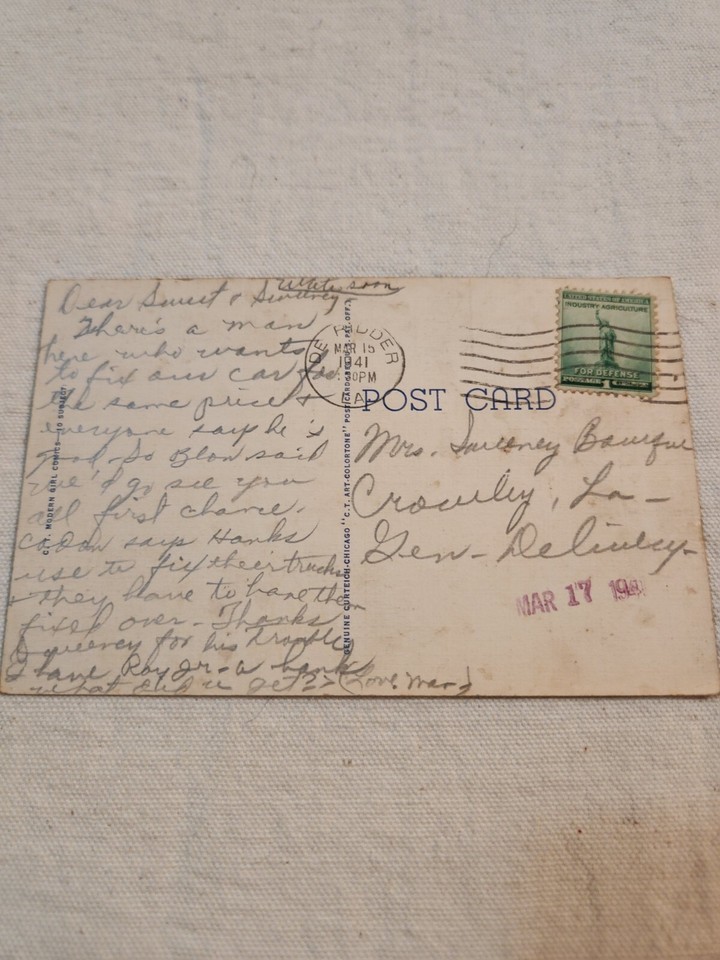 Write soon
Dear Sweet & Sweeney
There's a man
here who wants
to fix our car for
the same price &
everyone says he's
good. So Blow said
we'd go see you
all first chance.
says Hanks
use to fix their trucks
& they have to have them
fixed over - Thanks
Sweeney for his trouble
I have Roy Jr. a bank
what did u get?? (Love, Mar
C.T. MODERN GIRL COMICS - 10 SUBJECTS
GENUINE CURTEICH-CHICAGO "C.T. ART-COLORTONE" POST CARD (REG. U.S. PAT. OFF.)
DE RIDDER
MAR 15
1941
30PM
LA.
UNITED STATES OF AMERICA
INDUSTRY AGRICULTURE
FOR DEFENSE
POSTAGE 1¢
POST CARD
Mrs. Sweeney
Crowley, La -
Gen - Delivery -
MAR 17 1941